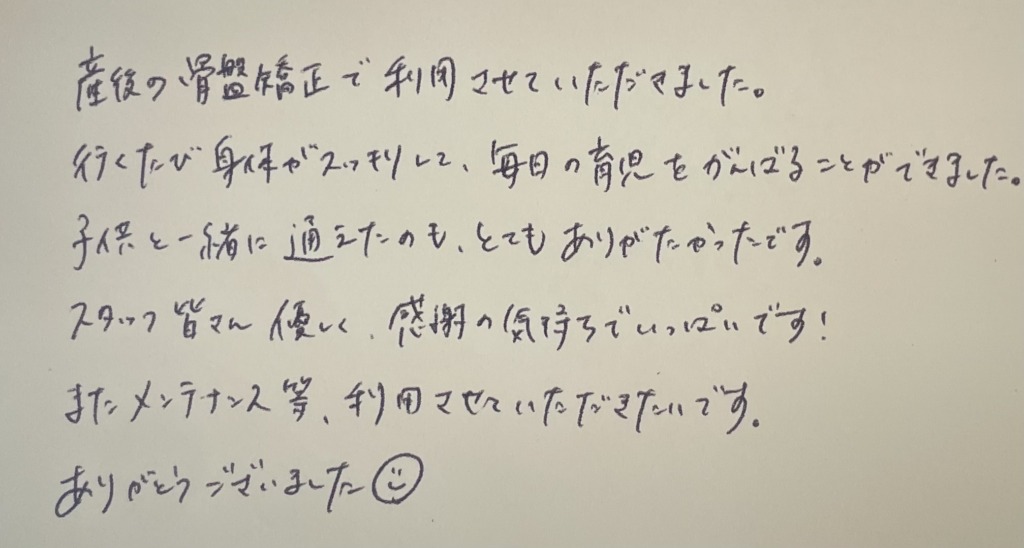 産後の骨盤矯正で利用させていただきました。
行くたび身体がスッキリして、毎日の育児をがんばることができました。
子供と一緒に通えたのも、とてもありがたかったです。
スタッフ皆さん優しく、感謝の気持ちでいっぱいです!
またメンテナンス等、利用させていただきたいです。
ありがとうございました☺